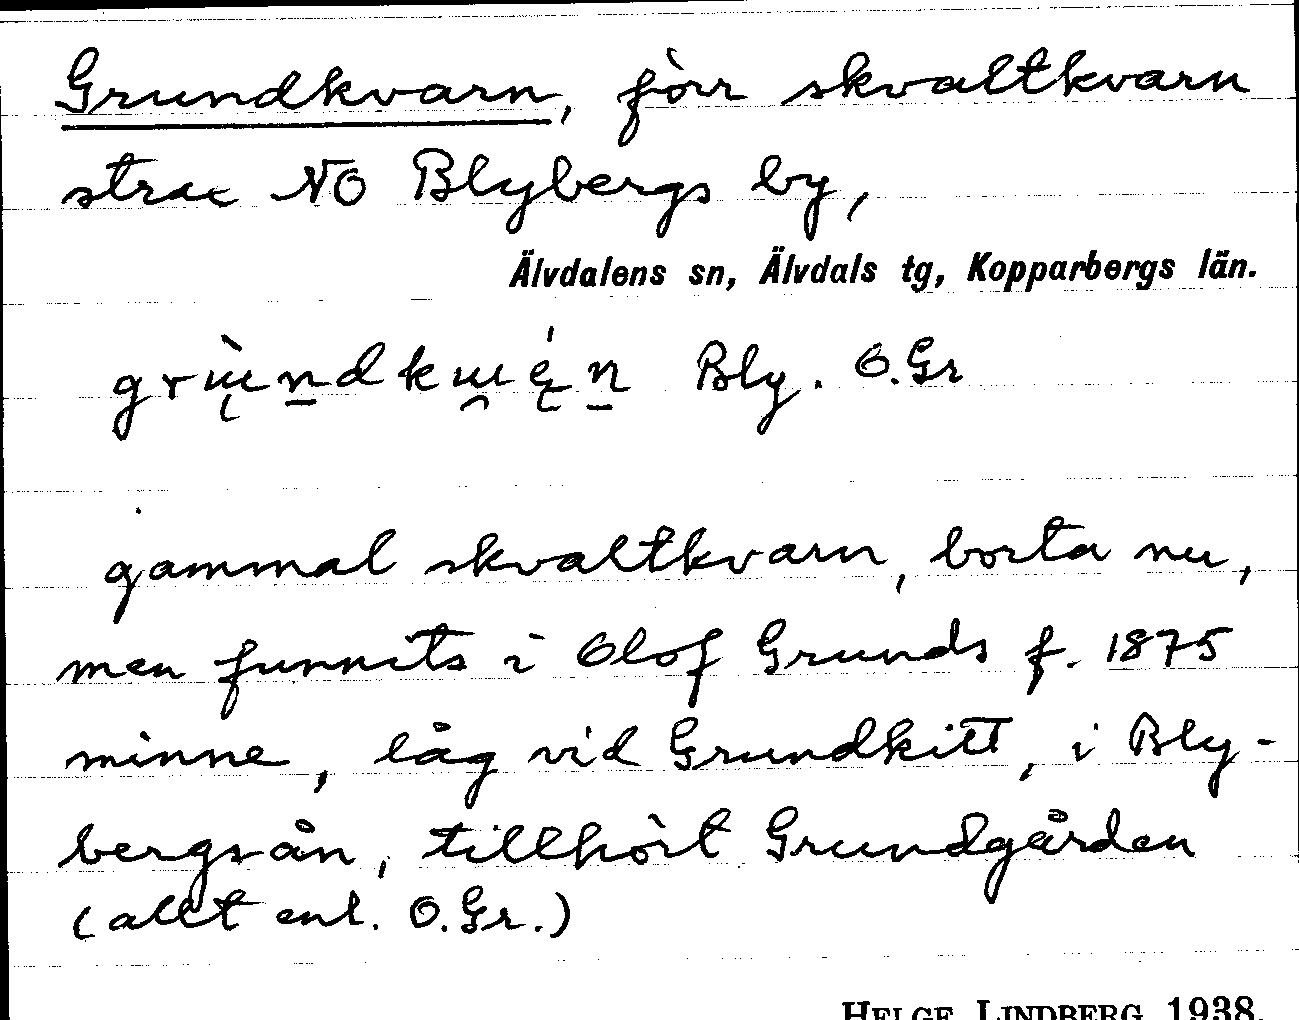 Grundkvarn, förr skvaltkvarn
strax NO Blybergs by,
Älvdalens sn, Älvdals tg, Kopparbergs län.
Bly. O.Gr
gammal skvaltkvarn, borta nu,
men funnits i Olof Grunds f. 1875
minne, låg vid Grundkitt, i Bly-
bergsån, tillhört Grundgården
(allt enl. O.Gr.)
HELGE LINDBERG 1938.